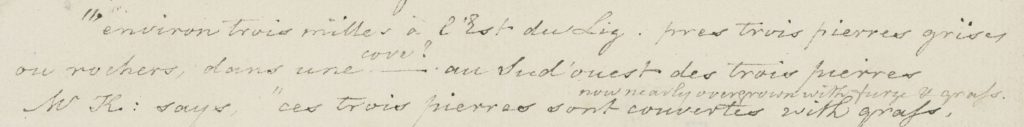 "environ trois milles à l'Est du Lig. pres trois pierres grises
cove?
ou rochers, dans une — au Sud'ouest des trois pierres
now nearly overgrown with furze & grass.
Mr K: says, "ces trois pierres sont couvertes with grass.